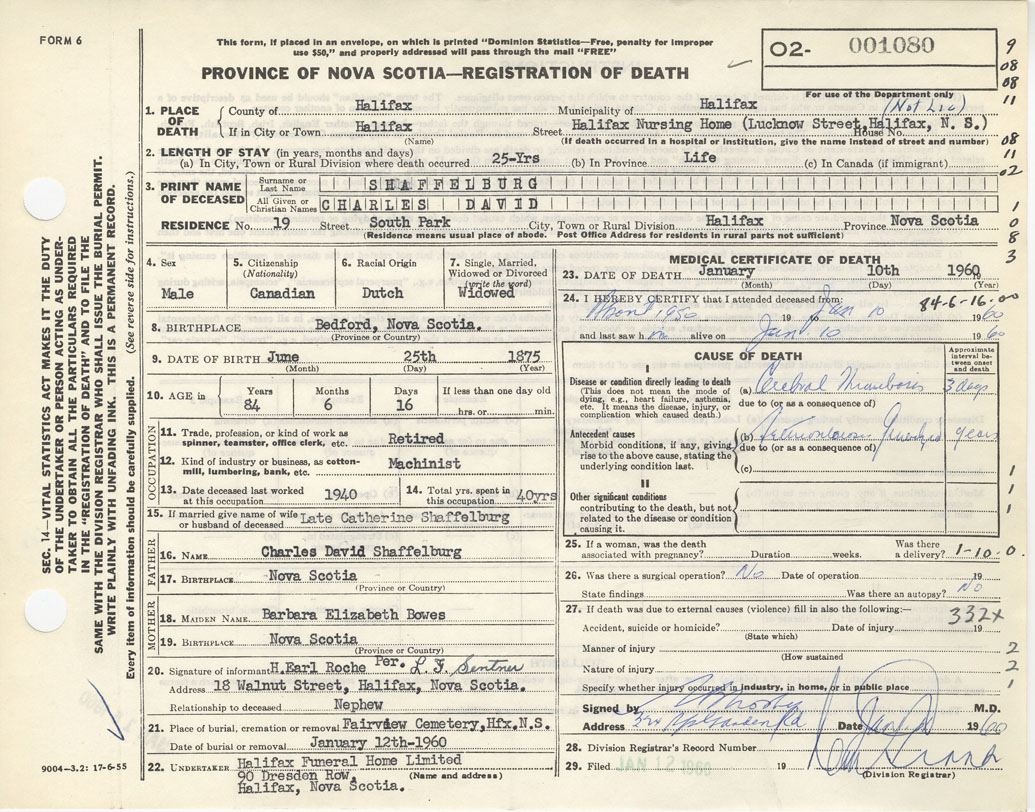 FORM 6
This form, if placed in an envelope, on which is printed "Dominion Statistics—Free, penalty for improper
use $50," and properly addressed will pass through the mail "FREE"
PROVINCE OF NOVA SCOTIA—REGISTRATION OF DEATH
O2- 001080
For use of the Department only
(Not Lic)
9
08
08
11
08
11
02
1
0
8
3
1. PLACE OF DEATH
County of Halifax Municipality of Halifax
If in City or Town Halifax Street Halifax Nursing Home (Lucknow Street, Halifax, N. S.) House No.
(Name) (If death occurred in a hospital or institution, give the name instead of street and number)
2. LENGTH OF STAY (in years, months and days)
(a) In City, Town or Rural Division where death occurred 25-Yrs (b) In Province Life (c) In Canada (if immigrant)
3. PRINT NAME OF DECEASED
Surname or Last Name SHAFFELBURG
All Given or Christian Names CHARLES DAVID
RESIDENCE No. 19 Street South Park City, Town or Rural Division Halifax Province Nova Scotia
(Residence means usual place of abode. Post Office Address for residents in rural parts not sufficient)
4. Sex Male
5. Citizenship (Nationality) Canadian
6. Racial Origin Dutch
7. Single, Married, Widowed or Divorced (write the word) Widowed
8. BIRTHPLACE Bedford, Nova Scotia.
(Province or Country)
9. DATE OF BIRTH June 25th 1875
(Month) (Day) (Year)
10. AGE in Years 84 Months 6 Days 16 If less than one day old hrs. or min.
OCCUPATION
11. Trade, profession, or kind of work as spinner, teamster, office clerk, etc. Retired
12. Kind of industry or business, as cotton-mill, lumbering, bank, etc. Machinist
13. Date deceased last worked at this occupation 1940
14. Total yrs. spent in this occupation 40yrs
15. If married give name of wife or husband of deceased Late Catherine Shaffelburg
FATHER
16. NAME Charles David Shaffelburg
17. BIRTHPLACE Nova Scotia
(Province or Country)
MOTHER
18. MAIDEN NAME Barbara Elizabeth Bowes
19. BIRTHPLACE Nova Scotia
(Province or Country)
20. Signature of informant H.Earl Roche Per. L. F. Sentner
Address 18 Walnut Street, Halifax, Nova Scotia.
Relationship to deceased Nephew
21. Place of burial, cremation or removal Fairview Cemetery,Hfx.N.S.
Date of burial or removal January 12th-1960
22. UNDERTAKER Halifax Funeral Home Limited
90 Dresden Row, (Name and address)
Halifax, Nova Scotia.
MEDICAL CERTIFICATE OF DEATH
23. DATE OF DEATH January 10th 1960
(Month) (Day) (Year)
84-6-16-00
24. I HEREBY CERTIFY that I attended deceased from:
About 1950 19 Jan 10 1960
and last saw h m alive on Jan 10 1960
CAUSE OF DEATH
Approximate interval between onset and death
I
Disease or condition directly leading to death
(This does not mean the mode of dying, e.g., heart failure, asthenia, etc. It means the disease, injury, or complication which caused death.)
(a) Cerebral Thrombosis 3 days
due to (or as a consequence of)
Antecedent causes
Morbid conditions, if any, giving rise to the above cause, stating the underlying condition last.
(b) years
due to (or as a consequence of)
(c)
II
Other significant conditions contributing to the death, but not related to the disease or condition causing it.
1
1
1
25. If a woman, was the death associated with pregnancy? Duration weeks. Was there a delivery? 1-10-0.
26. Was there a surgical operation? No Date of operation 19
State findings Was there an autopsy? No
27. If death was due to external causes (violence) fill in also the following:—
332x
Accident, suicide or homicide? Date of injury 19
(State which)
Manner of injury 2
(How sustained
Nature of injury 2
Specify whether injury occurred in industry, in home, or in public place 1
Signed by M.D.
Address Date 1960
28. Division Registrar's Record Number
29. Filed JAN 12 1960 19
(Division Registrar)
SEC. 14—VITAL STATISTICS ACT MAKES IT THE DUTY
OF THE UNDERTAKER OR PERSON ACTING AS UNDER-
TAKER TO OBTAIN ALL THE PARTICULARS REQUIRED
IN THE "REGISTRATION OF DEATH" AND TO FILE THE
SAME WITH THE DIVISION REGISTRAR WHO SHALL ISSUE THE BURIAL PERMIT.
WRITE PLAINLY WITH UNFADING INK. THIS IS A PERMANENT RECORD.
Every item of information should be carefully supplied. (See reverse side for instructions.)
9004-3.2: 17-6-55